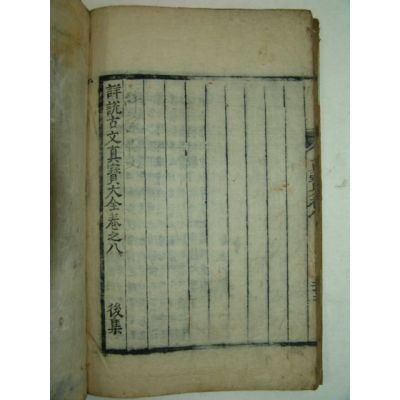 詳説古文真寶大全卷之八 後集